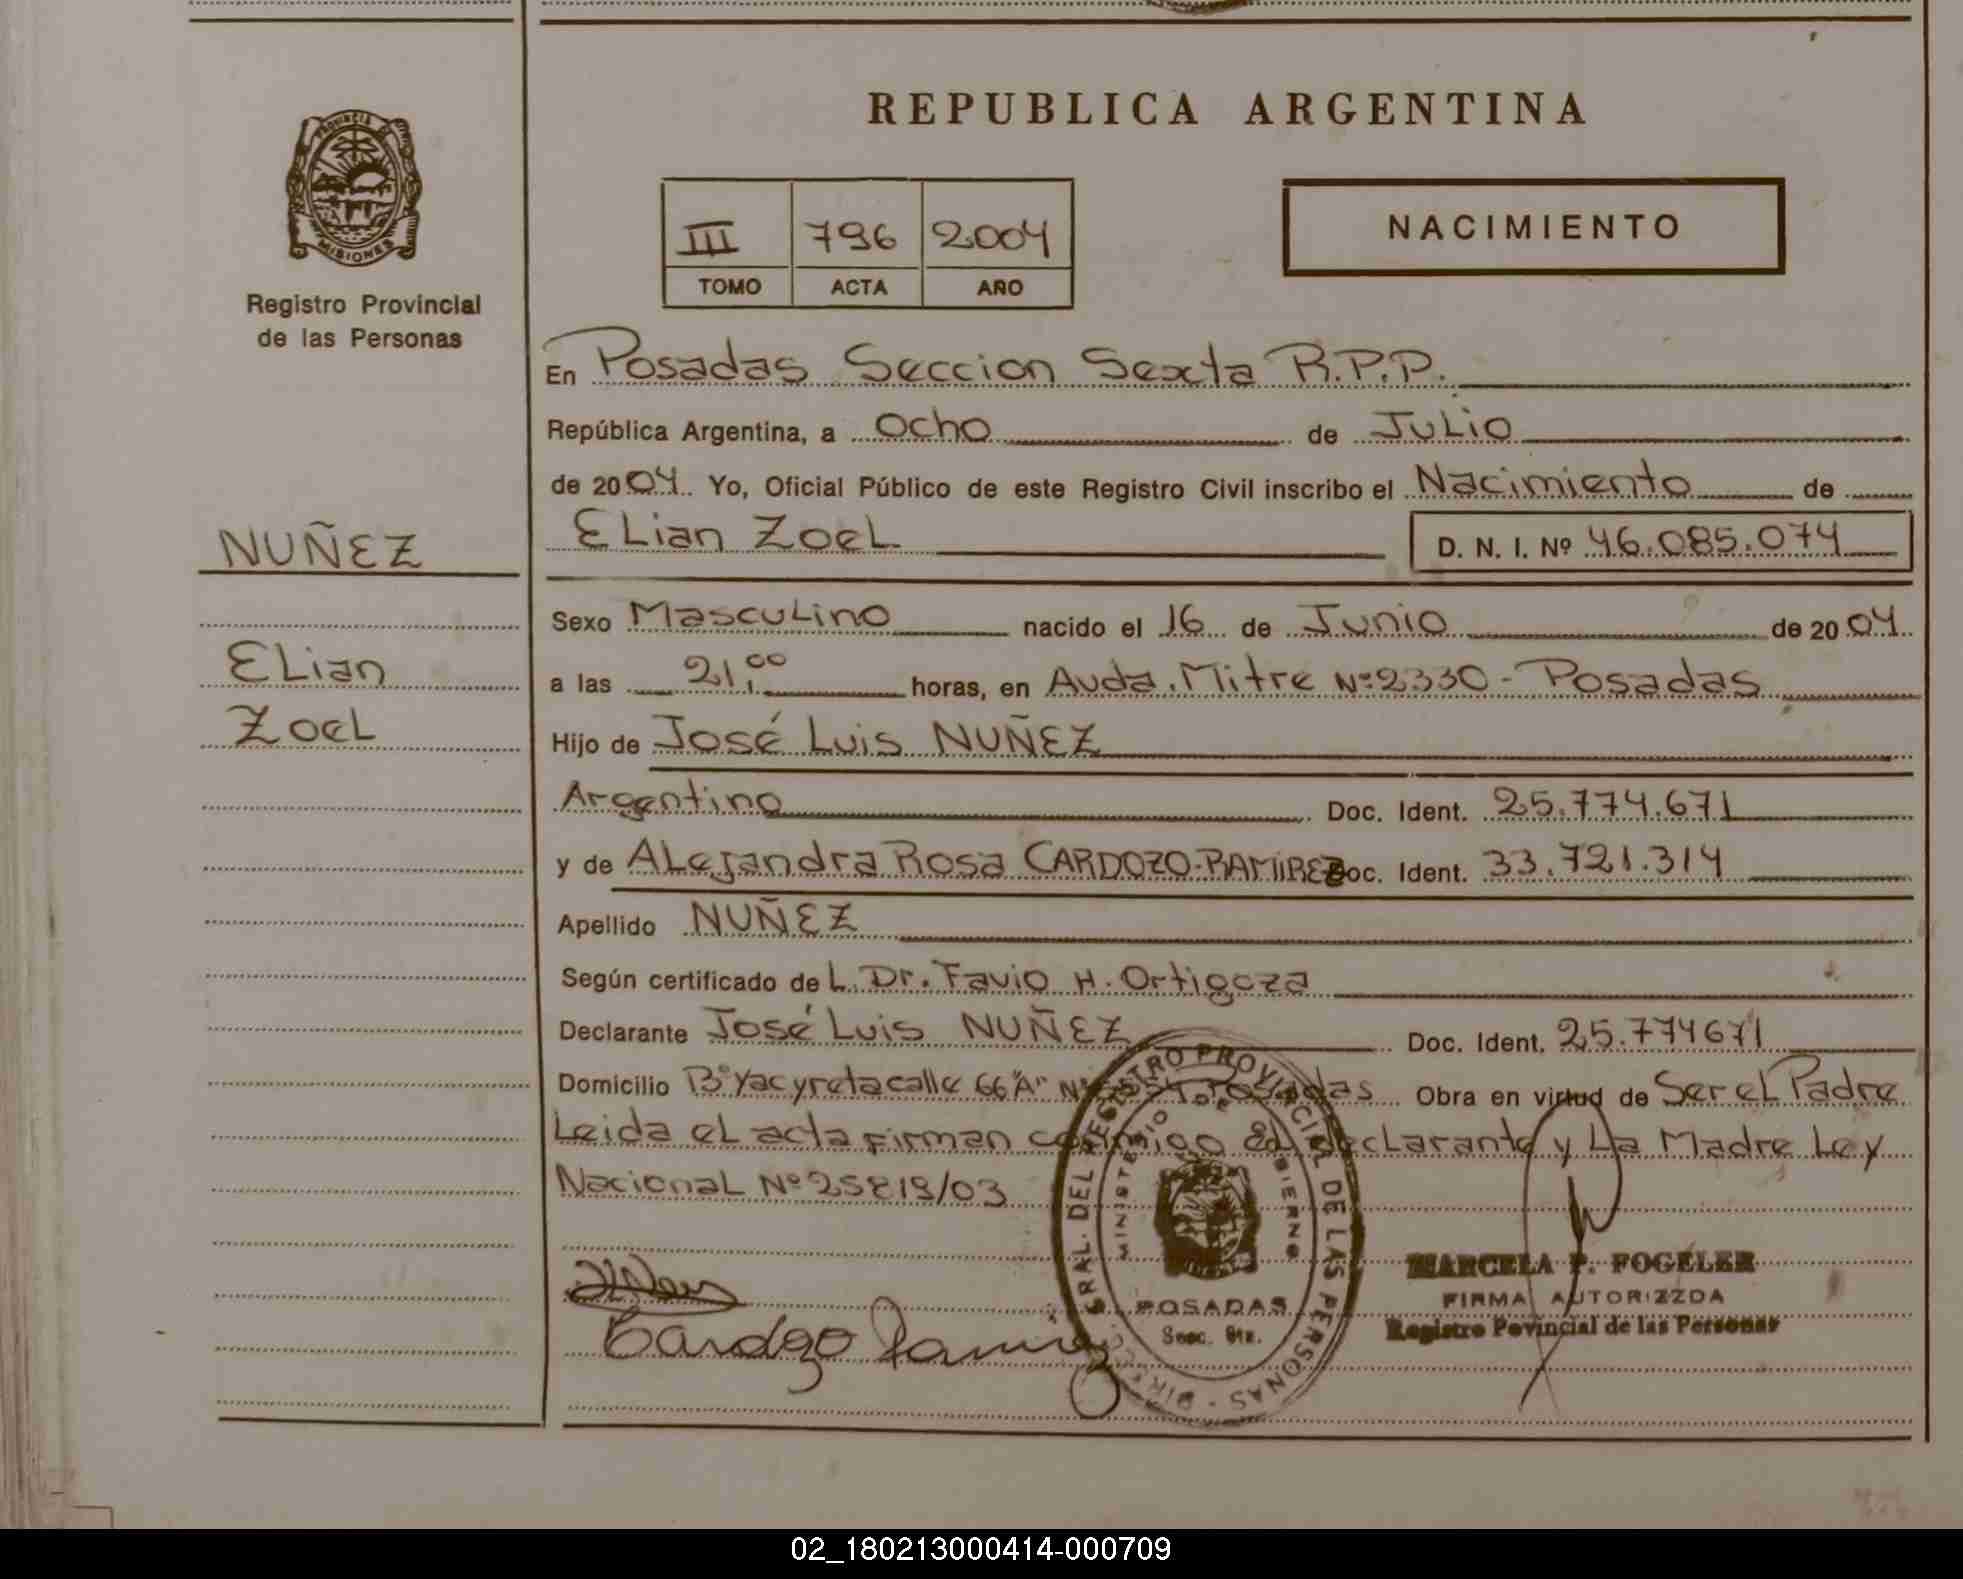 REPUBLICA ARGENTINA
PROVINCIA DE MISIONES
Registro Provincial
de las Personas
III 796 2004
TOMO ACTA AÑO
NACIMIENTO
En Posadas Seccion Sexta R.P.P.
República Argentina, a Ocho de Julio
de 2004. Yo, Oficial Público de este Registro Civil inscribo el Nacimiento de
NUÑEZ
Elian Zoel
D. N. I. Nº 46.085.074
Sexo Masculino nacido el 16 de Junio de 2004
Elian
a las 21,00 horas, en Avda. Mitre Nº 2330 - Posadas
Zoel
Hijo de José Luis NUÑEZ
Argentino Doc. Ident. 25.774.671
y de Alejandra Rosa CARDOZO-RAMIREZ Doc. Ident. 33.721.314
Apellido NUÑEZ
Según certificado de L. Dr. Favio H. Ortigoza
Declarante José Luis NUÑEZ Doc. Ident. 25.774671
Domicilio Bº Yacyreta calle 66 "A" Posadas Obra en virtud de Ser el Padre
Leida el acta firman conmigo el declarante y La Madre Ley
Nacional Nº 25819/03
Cardozo Ramirez
GRAL. DEL REGISTRO PROVINCIAL DE LAS PERSONAS
MINISTERIO DE GOBIERNO
POSADAS
Secc. 6ta.
MARCELA P. FOGELER
FIRMA AUTORIZZDA
Registro Povincial de las Personas
02_180213000414-000709